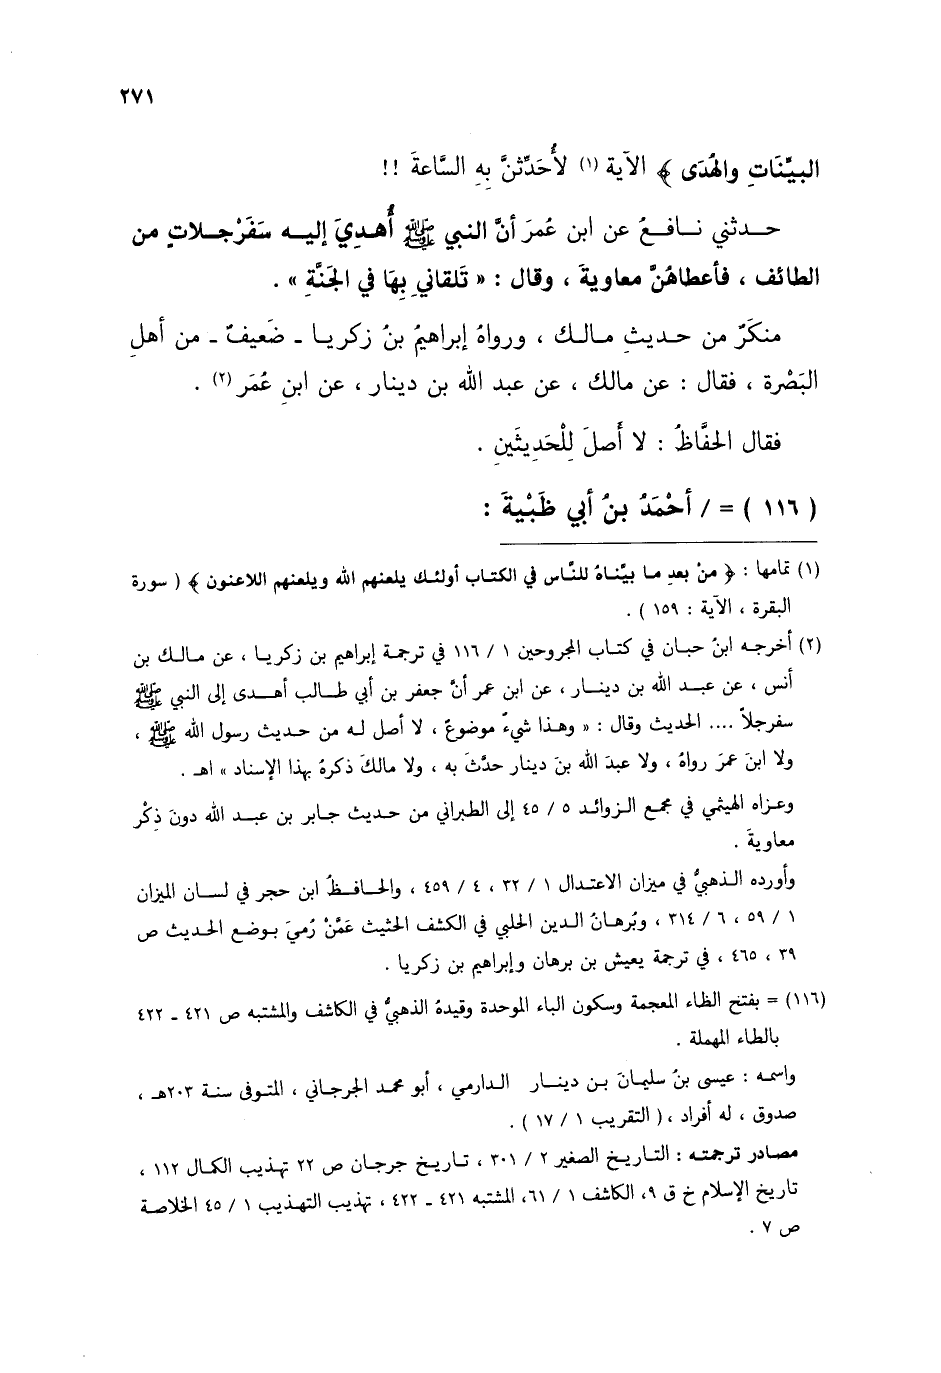 ٢٧١
البيِّنَاتِ والهُدَى ﴾ الآية (١) لأُحَدِّثنَّ بِهِ السَّاعةَ !!
حـدثني نـافـعُ عن ابن عُمرَ أنَّ النبي ﷺ أُهـدِيَ إليـه سَفَرْجـلاتٍ من
الطائف ، فأعطاهُنَّ معاويةَ ، وقال : « تَلقاني بِهَا في الجَنَّةِ » .
منكَرٌ من حـديثِ مـالـك ، ورواهُ إبراهيمُ بنُ زكريـا ـ ضَعيفٌ ـ من أهلِ
البَصْرة ، فقال : عن مالك ، عن عبد الله بن دينار ، عن ابنِ عُمَر (٢) .
فقال الحفَّاظُ : لا أَصلَ لِلْحَدِيثَينِ .
( ١١٦ ) = / أحْمَدُ بنُ أبي ظَبْيةَ :
(١) تمامها : ﴿ منْ بعدِ ما بيَّناهُ للنَّاس في الكتاب أولئـك يلعنهم الله ويلعنهم اللاعنون ﴾ ( سورة
البقرة ، الآية : ١٥٩ ) .
(٢) أخرجـه ابنُ حبـان في كتـاب المجروحين ١ / ١١٦ في ترجمة إبراهيم بن زكريـا ، عن مالـك بن
أنس ، عن عبـد الله بن دينـار ، عن ابن عمر أنَّ جعفر بن أبي طـالب أهـدى إلى النبي ﷺ
سفرجلاً .... الحديث وقال : « وهـذا شيءٌ موضوعٌ ، لا أصل لـه من حديث رسول الله ﷺ ،
ولا ابنَ عمرَ رواهُ ، ولا عبدَ الله بنَ دينار حدَّثَ به ، ولا مالكَ ذكرهُ بهذا الإسناد » اهـ .
وعزاه الهيثمي في مجمع الـزوائـد ٥ / ٤٥ إلى الطبراني من حـديث جـابر بن عبـد الله دونَ ذِكْر
معاويةَ .
وأورده الـذهبيُّ في ميزان الاعتدال ١ / ٣٢ ، ٤ / ٤٥٩ ، والحـافـظُ ابن حجر في لسـان الميزان
١ / ٥٩ ، ٦ / ٣١٤ ، وبُرهـانُ الـدين الحلبي في الكشف الحثيث عَمَّنْ رُميَ بـوضع الحـديث ص
٣٩ ، ٤٦٥ ، في ترجمة يعيش بن برهان وإبراهيم بن زكريا .
(١١٦) = بفتح الظاء المعجمة وسكون الباء الموحدة وقيدهُ الذهبيُّ في الكاشف والمشتبه ص ٤٢١ ـ ٤٢٢
بالطاء المهملة .
واسمه : عيسى بنُ سليمانَ بـن دينـار الدارمي ، أبو محمد الجرجاني ، المتوفى سنـة ٢٠٣هـ ،
صدوق ، له أفراد ، ( التقريب ١ / ١٧ ) .
مصادر ترجمتـه : التـاريـخ الصغير ٢ / ٣٠١ ، تـاريـخ جرجـان ص ٢٢ تهـذيب الكمال ١١٢ ،
تاريخ الإسلام خ ق ٩، الكاشف ١ / ٦١، المشتبه ٤٢١ ـ ٤٢٢ ، تهذيب التهـذيب ١ / ٤٥ الخلاصـة
ص ٧ .